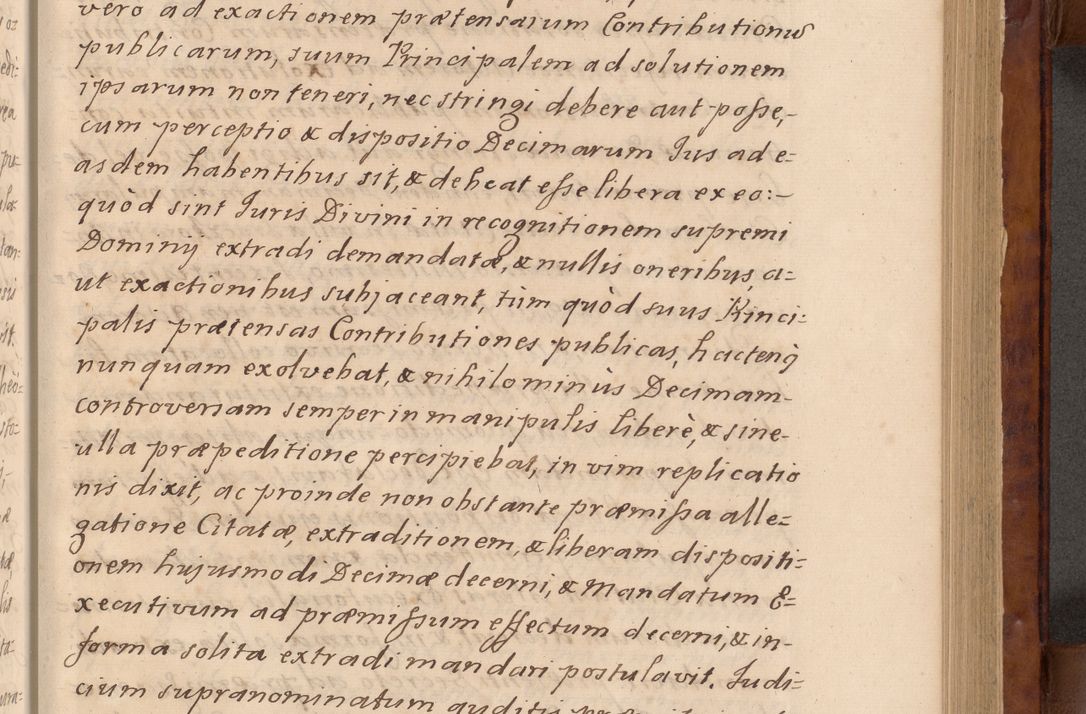 vero ad exactionem prætensarum Contributionũ
publicarum, suum Principalem ad solutionem
ipsarum non teneri, nec stringi debere aut posse,-
cum perceptio & dispositio Decimarum Jus ad e=
asdem habentibus sit, & debeat esse libera ex eo:-
quòd sint Juris Divini in recognitionem supremi
Dominij extradi demandatæ, & nullis oneribus, a=
ut exactionibus subjaceant, tùm quòd suus Princi=
palis prætensas Contributiones publicas, hactenq
nunquam exolvebat, & nihilominùs Decimam-
controversam semper in manipulis liberè, & sine-
ulla præpeditione percipiebat, in vim replicatio
nis dixit, ac proinde non obstante præmissa alle=
gatione Citatæ, extraditionem, & liberam dispositi=
onem hujusmodi Decimæ decerni, & Mandatum E=
xecutivum ad præmissum effectum decerni, & in-
forma solita extradi mandari postulavit. Judi=
cium supranominatum auditis